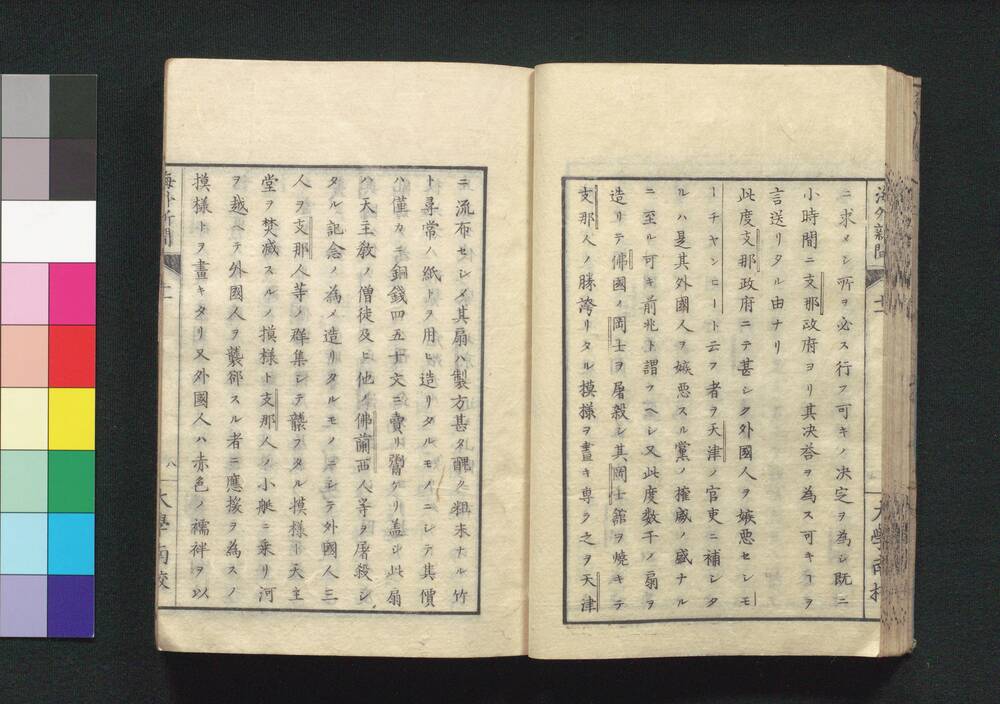 海外新聞
大學南校
ニ求メシ所ヲ必ス行フ可キノ决定ヲ為シ既ニ
小時間ニ支那政府ヨリ其决荅ヲ為ス可キヿヲ
言送リタル由ナリ
此度支那政府ニテ甚シク外國人ヲ嫉惡セシモ
ーチヤンヒート云フ者ヲ天津ノ官吏ニ補シタ
ルハ是其外國人ヲ嫉惡スル黨ノ權威ノ盛ナル
ニ至ル可キ前兆ト謂フヘシ又此度数千ノ扇ヲ
造リテ佛國ノ岡士ヲ屠殺シ其岡士舘ヲ燒キテ
支那人ノ勝誇リタル模様ヲ畫キ専ラ之ヲ天津
ニ流布セシメ其扇ハ製方甚タ醜ク粗末ナル竹
ト尋常ノ紙トヲ用ヒ造リタルモノニシテ其價
ハ僅カニ銅錢四五十文ニ賣リ鬻ケリ盖シ此扇
ハ天主教ノ僧徒及ヒ他ノ佛蘭西人等ヲ屠殺シ
タル記念ノ為メ造リタルモノニシテ外國人三
人ヲ支那人等ノ群集シテ襲フタル摸様ト天主
堂ヲ焚滅スルノ摸様ト支那人ノ小艇ニ乗リ河
ヲ越ヘテ外國人ヲ襲郤スル者ニ應援ヲ為スノ
摸様トヲ畫キタリ又外國人ハ赤色ノ襦袢ヲ以
海外新聞
八
大學南校